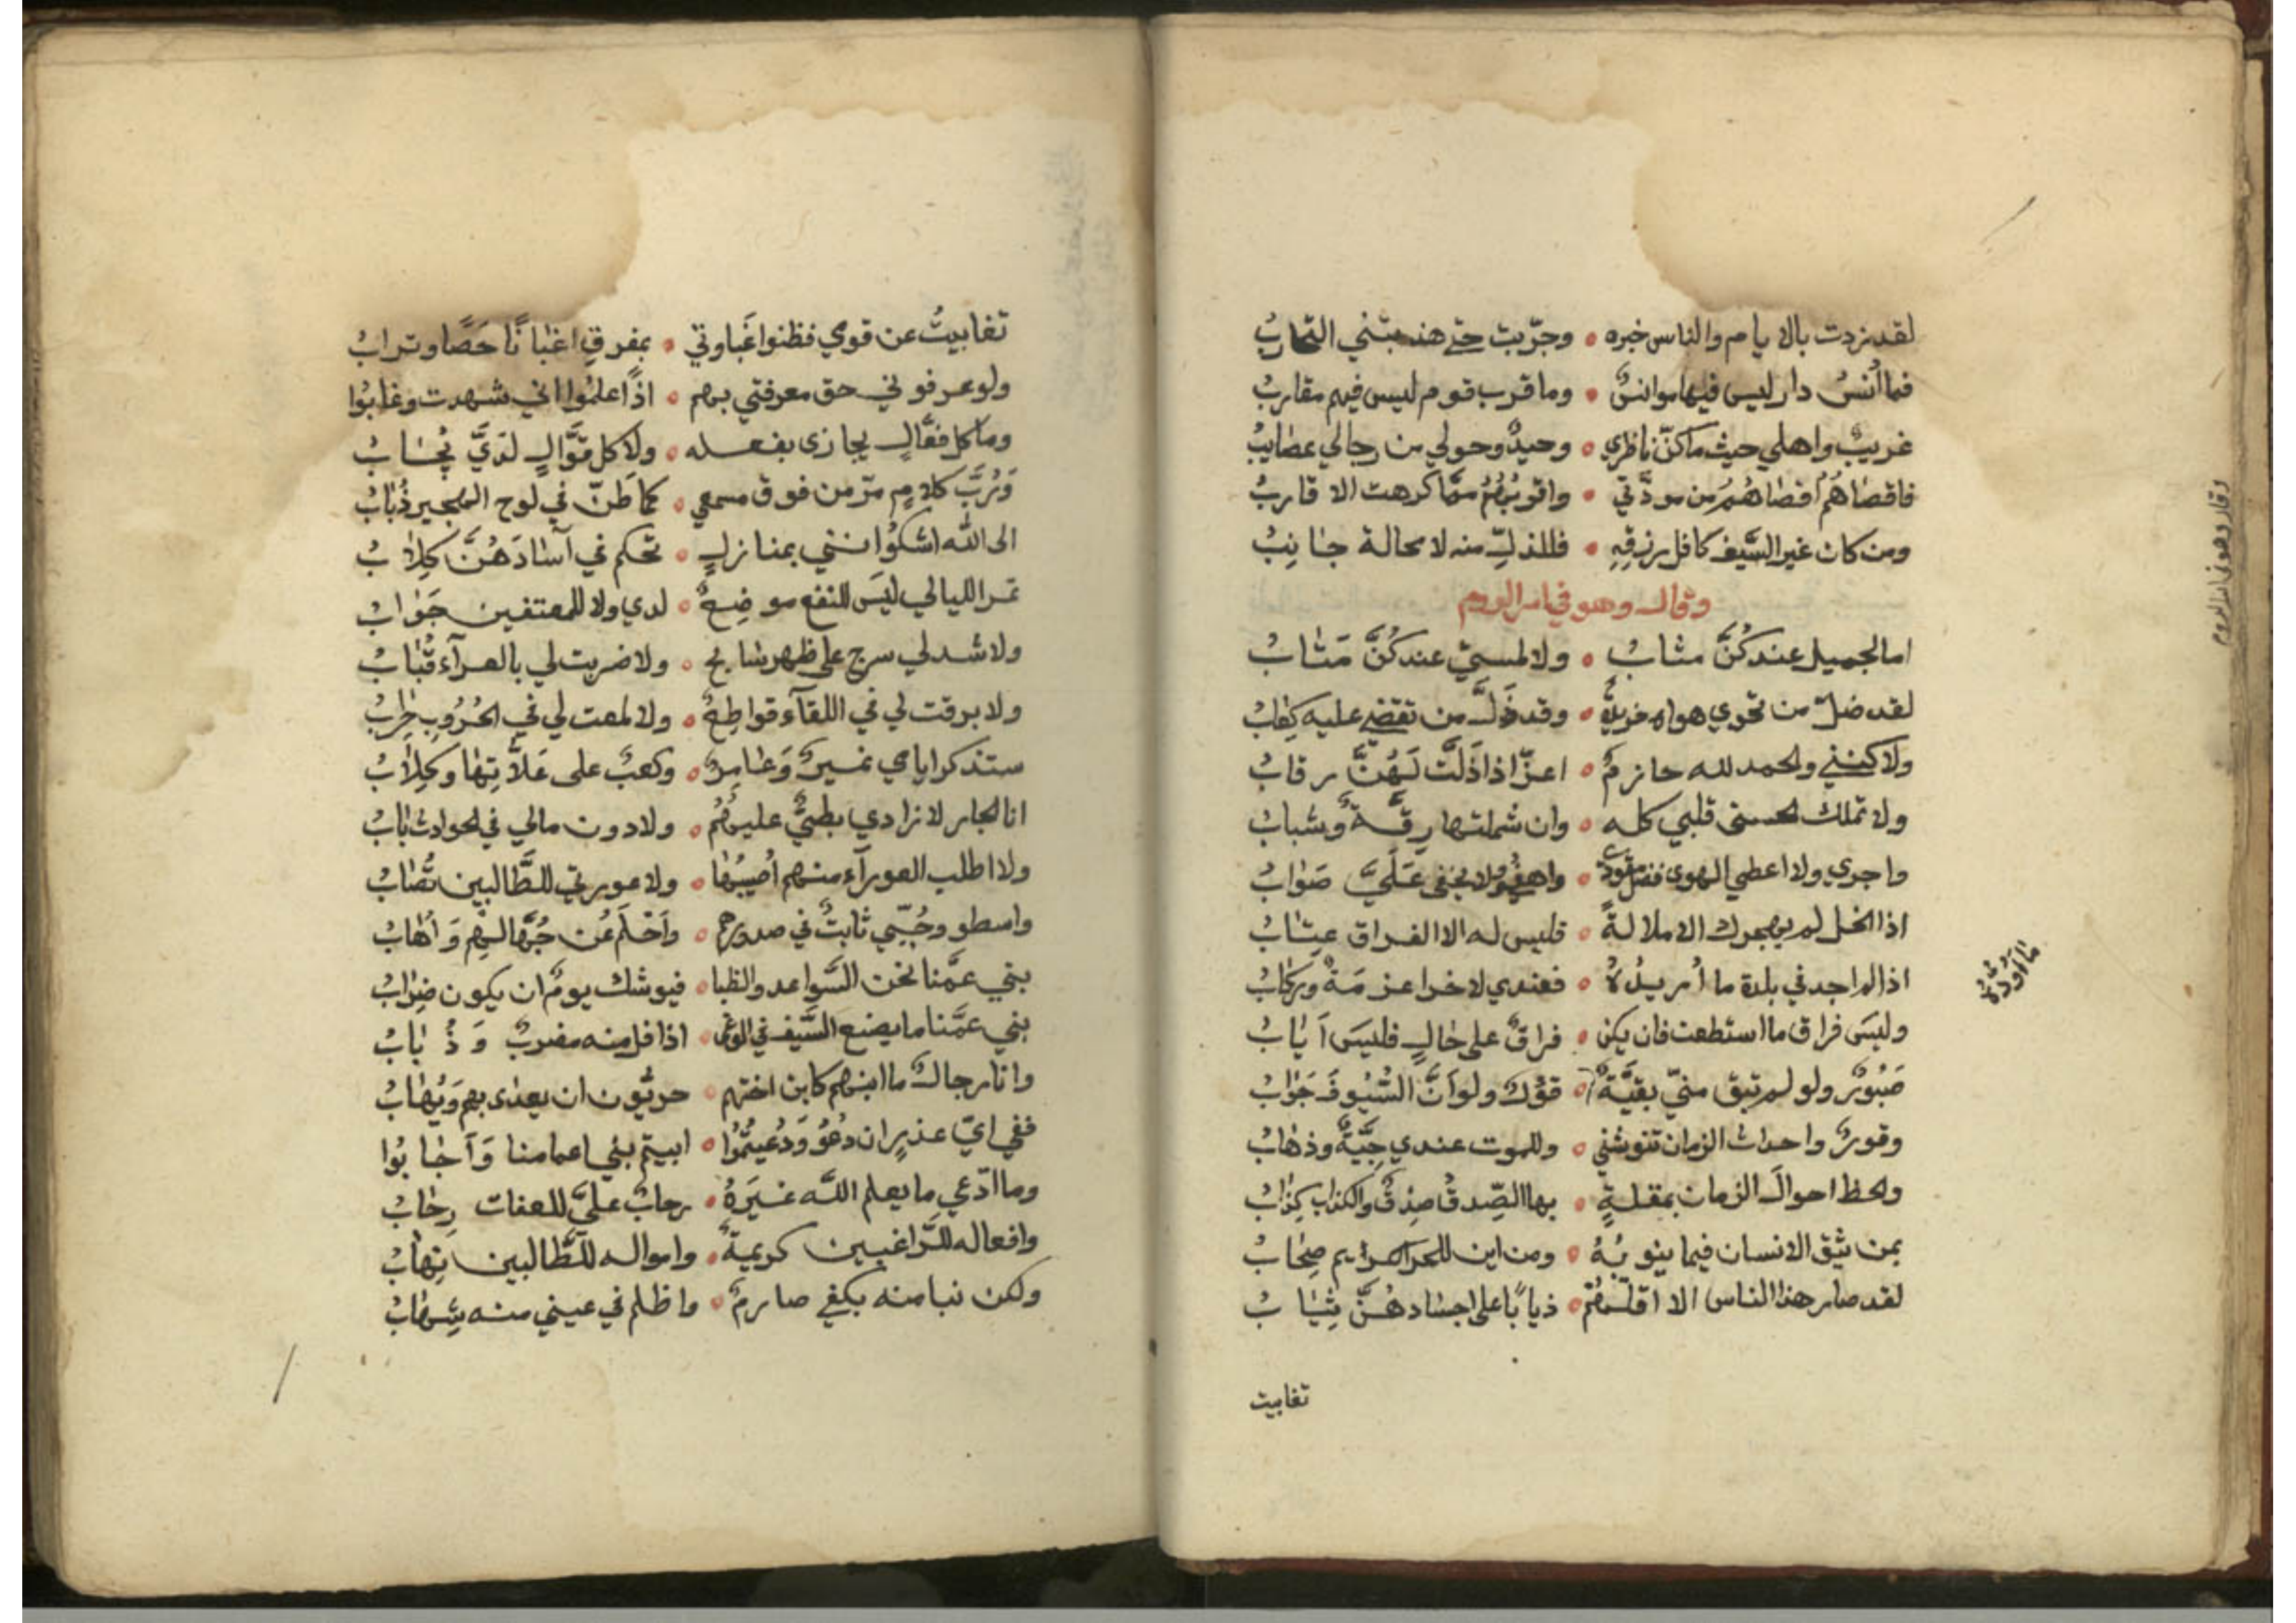 لقد زدت بالايام والناس خبره • وجرّبت حتى هذبتني التجاربُ
فما أُنسُ دار ليس فيها موانسٌ • وما قرب قوم ليس فيهم مقاربُ
غريبٌ واهلي حيث ما كنّ ناظري • وحيدٌ وحولي من رجالي عصايبُ
فاقصاهُم اقصاهُم من مودّتي • واقربُهُم ممّا كرهت الاقاربُ
ومن كان غير السَّيف كافل رزقِهِ • فللذلِّ منه لا محالة جانبُ
وقال وهو في اسر الروم
اما لجميل عندكُنَّ مثابُ • ولا لمسيىٍ عندكُنَّ مَتابُ
لقد ضلّ من تحوي هواه خريدةٌ • وقد ذَلَّ من تقضي عليه كعابُ
ولاكنني والحمد لله حازمٌ • اعزّ اذا ذَلَّت لَهُنَّ رقابُ
ولا تملك الحسنى قلبي كله • وان شملتها رقَّةٌ وشبابُ
واجري ولا اعطي الهوى فضل مقودي • واهفُو ولا يخفى عَلَيَّ صَوابُ
اذا الخل لم يهجرك الا ملالةً • فليس له الا الفراق عِتابُ
اذا لم اجد في بلدة ما أريدُهُ • فعندي لاخرا عزمَةٌ وركابُ
وليسَ فراق ما استطعت فان يكن • فراقٌ على حالٍ فليسَ اَيابُ
صَبُورٌ ولو لم تبق منيّ بقيَّةٌ • قؤلٌ ولو اَنَّ السُّيُوفَ جَوابُ
وقورٌ واحداث الزمان تنوشني • وللموت عندي جِيَّةٌ وذهابُ
والحظ احوالَ الزمان بمقلةٍ • بها الصِّدقُ صِدقٌ والكذاب كِذابُ
بمن يثق الانسان فيما ينوبُهُ • ومن اين للحر الكرايم صِحابُ
لقد صار هذا الناس الا اقلَّهُم • ذياباً على اجسادهُنَّ ثِيابُ
تغابيت
ما اوده
وقال وهو في اسر الروم
تغابيتُ عن قومي فظنوا غَباوتي • بمفرقِ اغبانا حَصًا وترابُ
ولو عرفوني حق معرفتي بهم • اذًا علمُوا اني شهدت وغابُوا
وما كل فعَّالٍ يجازى بفعله • ولا كل قوَّالٍ لدَيَّ يُجابُ
وَرُبَّ كلامٍ مرّ من فوق مسمعي • كما طَنّ في لوح الهجير ذُبابُ
الى الله اشكُوا انني بمنازلٍ • تحكم في آسادَهُنَّ كِلابُ
تمر الليالي ليسَ للنفع موضِعٌ • لدي ولا للمعتفين جَوابُ
ولا شد لي سرج على ظهر سابح • ولا ضربت لي بالعرآء قُبابُ
ولا برقت لي في اللقآء قواطِعٌ • ولا لمعت لي في الحُرُوبِ حِرابُ
ستذكر ايامي نميرٌ وَعامِرٌ • وكعبٌ على عَلاَّتِها وكِلابُ
انا الجار لا زادي بطيٌّ عليهُمُ • ولا دون مالي في الحوادث بابُ
ولا اطلب العورآء منهم اُصيبُها • ولا عورتي للطَّالبين تُصابُ
واسطو وحُبّي ثابتٌ في صدورهم • وَاَحْلُم عن جُهَّالهِم وَاُهابُ
بني عمَّنا نحن السَّواعد والظبا • فيوشك يومٌ ان يكون ضِرابُ
بني عمَّنا ما يصنع السَّيف في الوغى • اذا فل منه مضربٌ وَذُبابُ
وانا رجالٌ ما ابنهم كابن اختهم • حريُّون ان يعدى بهم وَيُهابُ
ففي ايّ عذرٍ ان دعُوُ وَدُعيتُمُوا • ابيتم بني اعمامنا وَاَجابُوا
وما ادّعي ما يعلم الله غيرَهُ • رحابُ عليّ للعفات رِحابُ
وافعاله للرَّاغبين كريمةٌ • وامواله للطَّالبين نِهابُ
ولكن نبا منه بكفي صارمٌ • واظلم في عيني منه شِهابُ